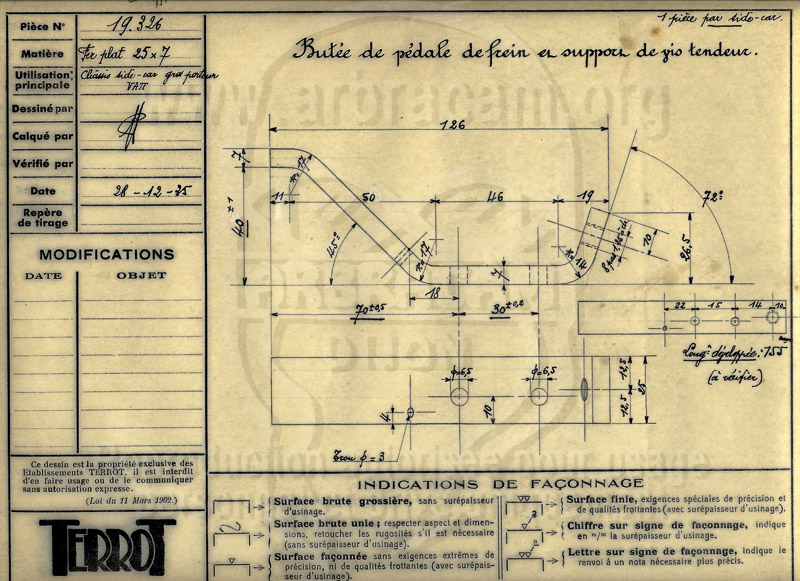 Pièce N° 19.326
Matière Fer plat 25 x 7
Utilisation principale Châssis side-car gros porteur
VATT
Dessiné par
Calqué par
Vérifié par
Date 28-12-35
Repère de tirage
MODIFICATIONS
DATE OBJET
Ce dessin est la propriété exclusive des
Etablissements TERROT, il est interdit
d'en faire usage ou de le communiquer
sans autorisation expresse.
(Loi du 11 Mars 1902.)
TERROT
1 pièce par side-car.
Butée de pédale de frein et support de vis tendeur.
www.arbracam.org
126
7
R=17
11
50
46
19
72°
40 ±1
45°
R=17
7
R=14
8 pas 1,25
10
26,5
18
70 ±0,5
30 ±0,2
22 15 14 10
Longr développée : 155
(à vérifier)
ϕ=6,5
ϕ=6,5
12,5
25
12,5
4
10
Trou ϕ = 3
INDICATIONS DE FAÇONNAGE
Surface brute grossière, sans surépaisseur
d'usinage.
Surface brute unie; respecter aspect et dimen-
sions, retoucher les rugosités s'il est nécessaire
(sans surépaisseur d'usinage).
Surface façonnée sans exigences extrêmes de
précision, ni de qualités frottantes (avec surépais-
seur d'usinage).
Surface finie, exigences spéciales de précision et
de qualités frottantes (avec surépaisseur d'usinage).
2
Chiffre sur signe de façonnage, indique
en m/m la surépaisseur d'usinage.
n
Lettre sur signe de façonnage, indique le
renvoi à un nota nécessaire plus précis.